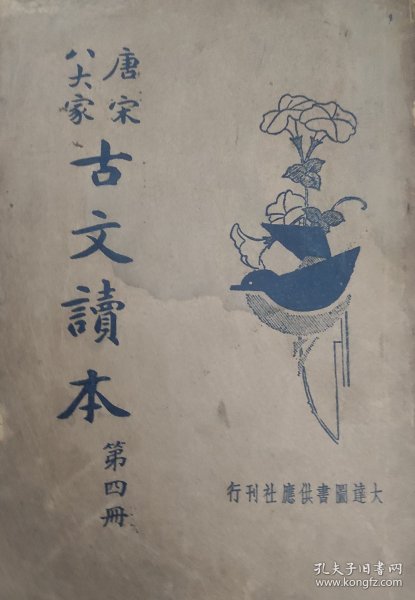 唐宋
八大家
古文讀本
第四冊
大達圖書供應社刊行
孔夫子旧书网
www.kongfz.com